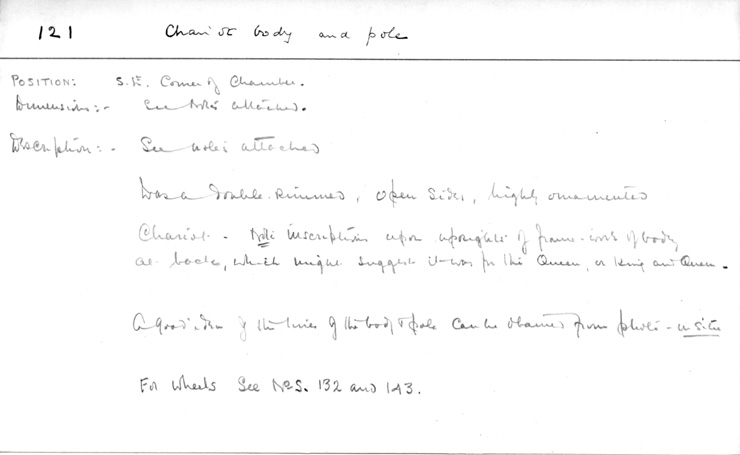 121 Chariot body and pole
POSITION: S.E. Corner of Chamber.
Dimensions:- See Notes attached.
Description:- See notes attached
Was a double-rimmed, open sides, highly ornamented
Chariot. - Note inscription upon uprights of frame-work of body,
at back, which might suggest it was for the Queen, or King and Queen.
A good idea of the lines of the body & pole can be obtained from photo - in situ
For wheels See Nos. 132 and 143.